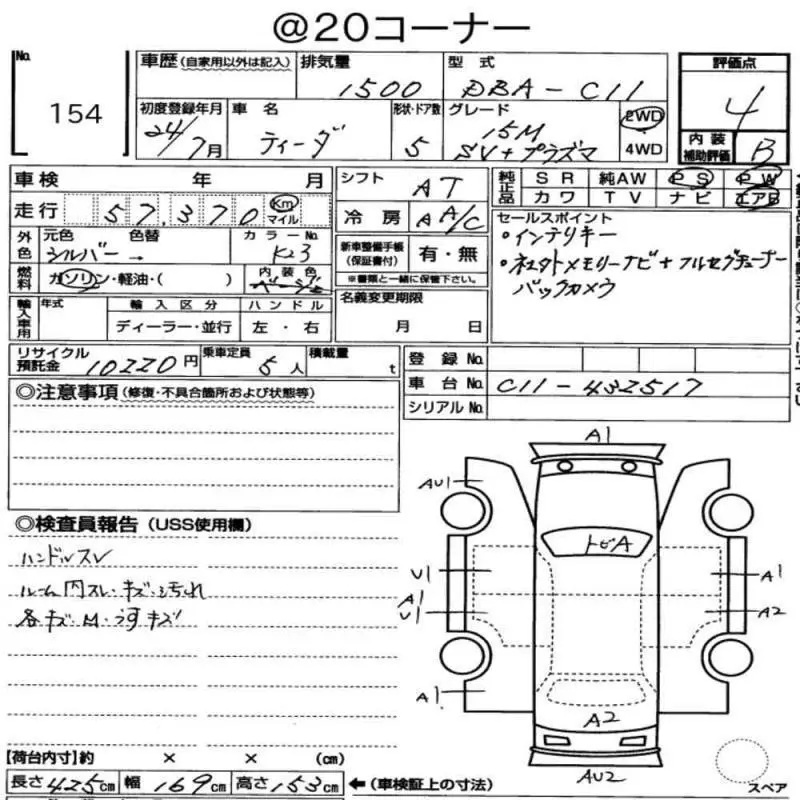 @20コーナー
No.
154
車歴(自家用以外は記入)
排気量
1500
型式
DBA-C11
評価点
4
初度登録年月
24/7月
車名
ティーダ
形状・ドア数
5
グレード
15M
SV+プラズマ
2WD
4WD
内装
補助評価
B
車検 年 月
シフト
AT
純正品
SR 純AW PS PW
カワ TV ナビ エアB
走行 57,370 Km
マイル
冷房
AA/C
セールスポイント
・インテリキー
・ネスタトメモリーナビ+フルセグチューナー
バックカメラ
外色
元色 色替
シルバー→
カラーNo.
K23
新車整備手帳
(保証書付)
有・無
※書類と一緒に保管下さい。
燃料
ガソリン・軽油・( )
内装色
ベージュ
名義変更期限
月 日
輸入車用
年式
輸入区分
ハンドル
ディーラー・並行
左・右
リサイクル
預託金
10220円
乗車定員
5人
積載量
t
登録No.
車台No.
C11-432517
シリアルNo.
◎注意事項(修復・不具合箇所および状態等)
◎検査員報告(USS使用欄)
ハンドルスレ
ルーム内スレ・キズ・汚れ
各キズ・M・うすキズ
A1
AU1
トビA
U1
A1
U1
A1
A2
A1
A2
AU2
スペア
【荷台内寸】約 × × (cm)
長さ425cm 幅169cm 高さ153cm
←(車検証上の寸法)